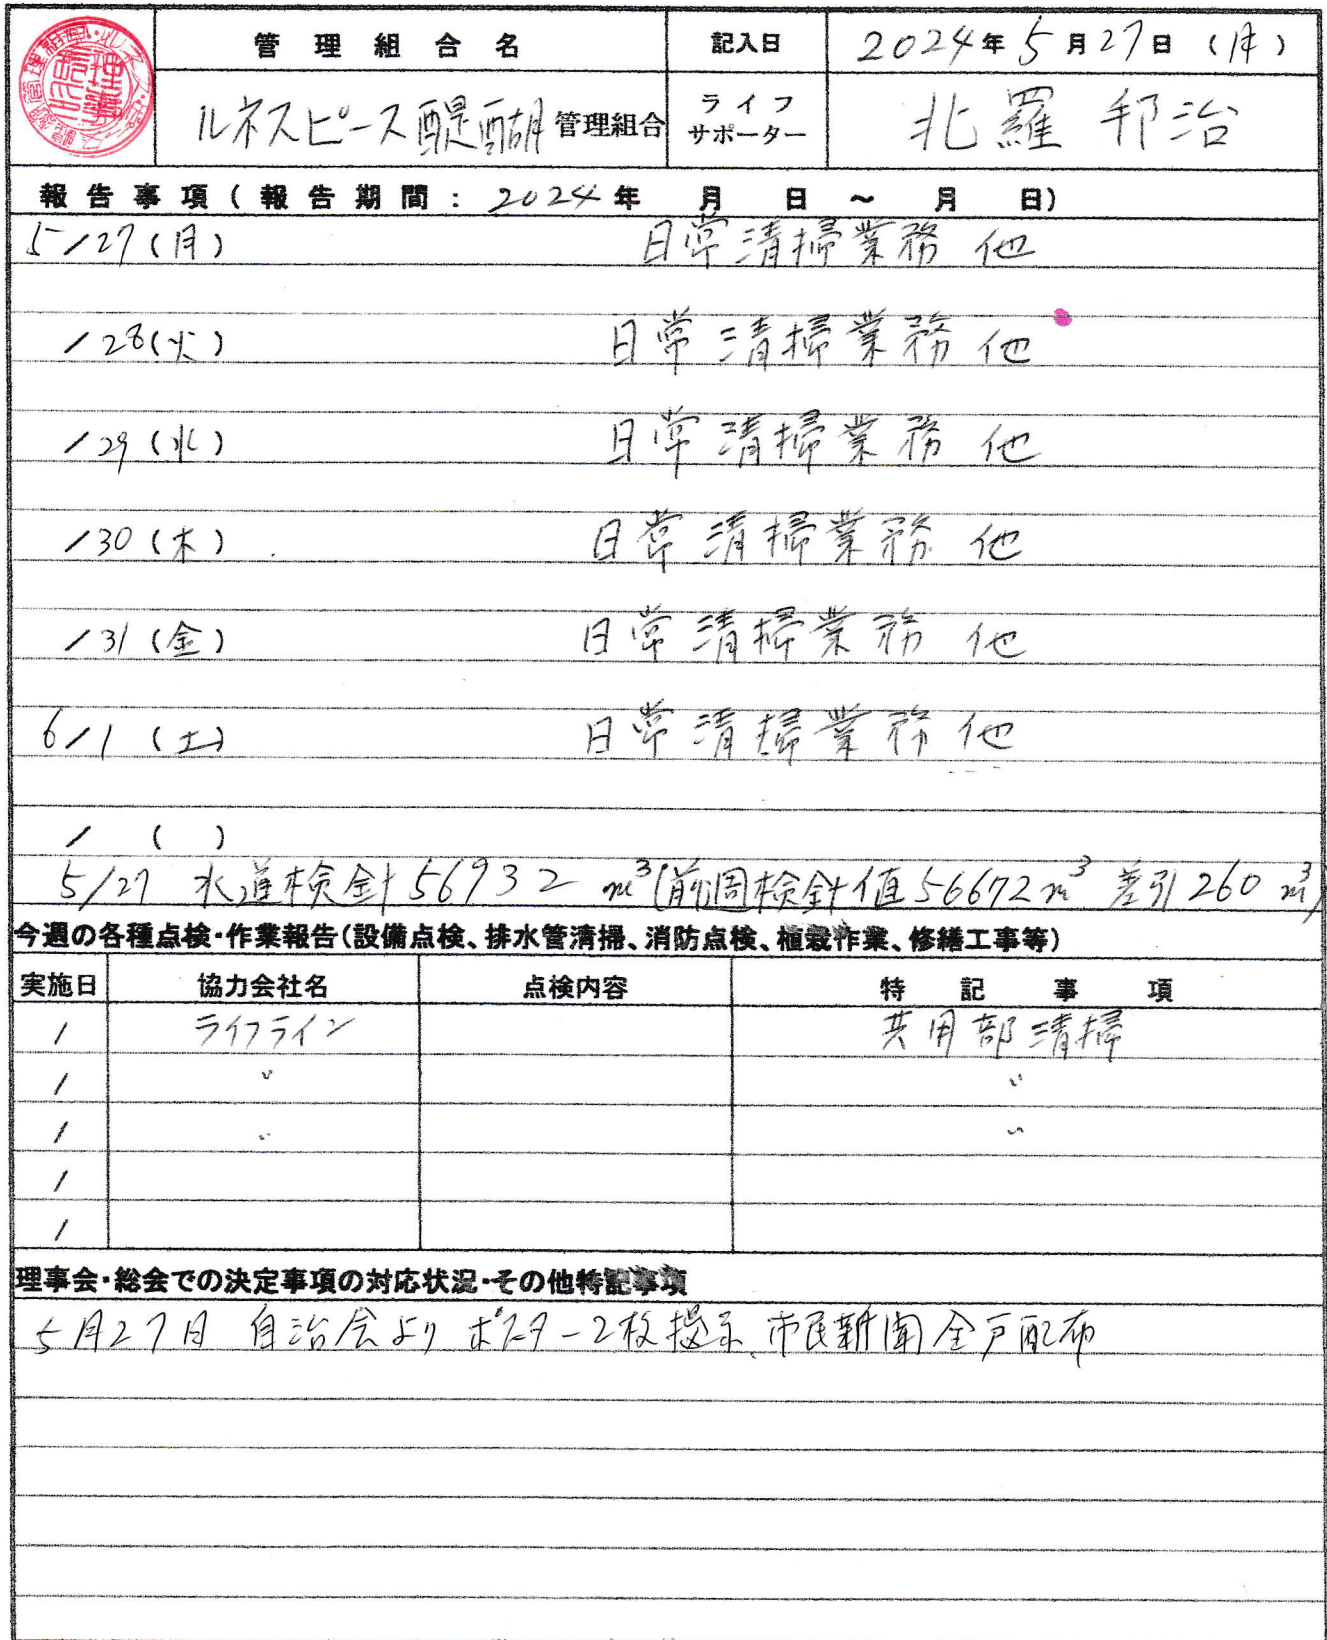 管理組合名 記入日 2024年5月27日（月）
ルネスピース醍醐管理組合 ライフサポーター 北羅 邦治
報告事項(報告期間：2024年 月 日 ～ 月 日)
5/27(月) 日常清掃業務 他
/28(火) 日常清掃業務 他
/29(水) 日常清掃業務 他
/30(木) 日常清掃業務 他
/31(金) 日常清掃業務 他
6/1(土) 日常清掃業務 他
/ ( )
5/27 水道検針 56932 m³(前週検針値56672m³ 差引260m³)
今週の各種点検・作業報告(設備点検、排水管清掃、消防点検、植栽作業、修繕工事等)
実施日 協力会社名 点検内容 特記事項
/ ライフライン 共用部清掃
/ 〃 〃
/ 〃 〃
/
/
理事会・総会での決定事項の対応状況・その他特記事項
5月27日 自治会よりポスター2枚掲示、市民新聞全戸配布